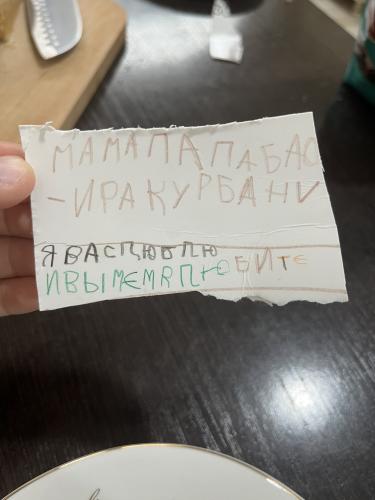 МАМАПАПАБАС
-ИРАКУРБАНИ
ЯВАСПЮБЛЮ
ИВЫМЕМЯПЮБИТЕ